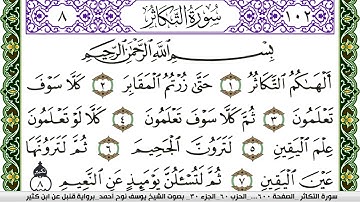 ٨ سُورَةُ التَّكَاثُرِ ١٠٢
بِسْمِ اللَّهِ الرَّحْمَٰنِ الرَّحِيمِ
أَلْهَىٰكُمُ التَّكَاثُرُ ١ حَتَّىٰ زُرْتُمُ الْمَقَابِرَ ٢ كَلَّا سَوْفَ
تَعْلَمُونَ ٣ ثُمَّ كَلَّا سَوْفَ تَعْلَمُونَ ٤ كَلَّا لَوْ تَعْلَمُونَ
عِلْمَ الْيَقِينِ ٥ لَتَرَوُنَّ الْجَحِيمَ ٦ ثُمَّ لَتَرَوُنَّهَا
عَيْنَ الْيَقِينِ ٧ ثُمَّ لَتُسْـَٔلُنَّ يَوْمَئِذٍ عَنِ النَّعِيمِ ٨
سورة التكاثر. الصفحة ٦٠٠... الحزب ٦٠. الجزء ٣٠. بصوت الشيخ يوسف نوح احمد. برواية قنبل عن ابن كثير